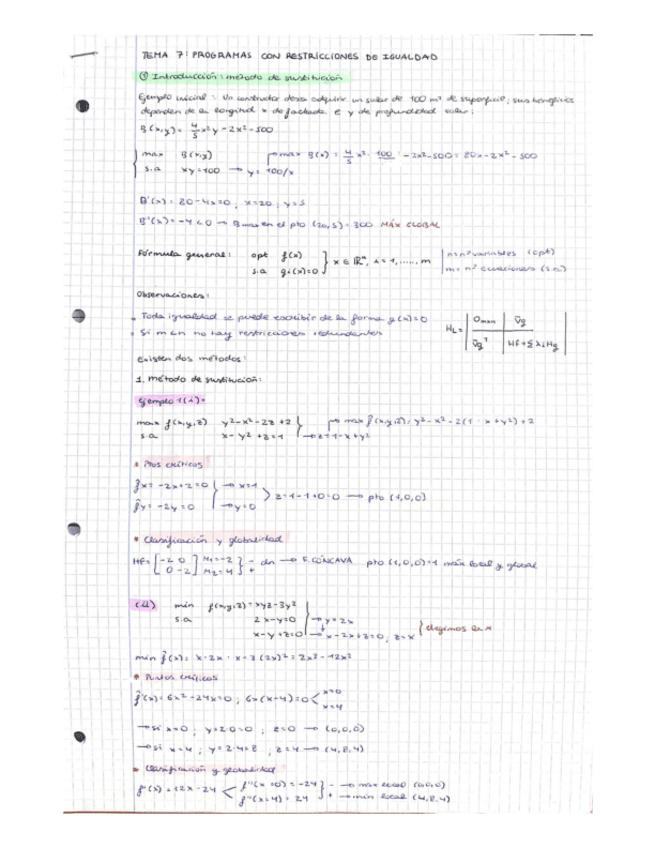 TEMA 7: PROGRAMAS CON RESTRICCIONES DE IGUALDAD
① Introducción: método de sustitución
Ejemplo inicial: Un constructor desea adquirir un solar de 100 m² de superficie, sus beneficios
dependen de la longitud x de fachada e y de profundidad solar:
B(x,y) = 4/5 x²y - 2x² - 500
max B(x,y) → max B(x) = 4/5 x² · 100 - 2x² - 500 = 80x - 2x² - 500
s.a xy = 100 → y = 100/x
B'(x) = 80 - 4x = 0, x = 20, y = 5
B''(x) = -4 < 0 → B max en el pto (20,5) = 300 MÁX GLOBAL
Fórmula general: opt f(x) } x ∈ ℝⁿ, i = 1, ..... m | n = nº variables (opt)
s.a gi(x) = 0 m = nº ecuaciones (s.a)
Observaciones:
Toda igualdad se puede escribir de la forma g(x) = 0
Si m < n no hay restricciones redundantes
HL = | Omxm ∇g |
| ∇gᵀ Hf + Σ λi Hg |
Existen dos métodos:
1. método de sustitución:
Ejemplo 1(i) =
max f(x,y,z) y² - x² - 2z + 2 → max f̂(x,y,z): y² - x² - 2(1 - x + y²) + 2
s.a x - y² + z = 1 → z = 1 - x + y²
* Ptos críticos
f̂x = -2x + 2 = 0 → x = 1
f̂y = -2y = 0 → y = 0 > z = 1 - 1 + 0 = 0 → pto (1,0,0)
* Clasificación y globalidad
Hf = [-2 0 0 -2] M1 = -2 M2 = 4 } - + dn → F. CÓNCAVA pto (1,0,0) = 1 máx local y global
(ii) min f(x,y,z) = xyz - 3y²
s.a 2x - y = 0 → y = 2x
x - y + z = 0 → x - 2x + z = 0, z = x } elegimos la x
min f̂(x) = x · 2x · x - 3(2x)² = 2x³ - 12x²
* Puntos críticos
f̂'(x) = 6x² - 24x = 0, 6x(x - 4) = 0 < x = 0 x = 4
→ si x = 0, y = 2·0 = 0, z = 0 → (0,0,0)
→ si x = 4, y = 2·4 = 8, z = 4 → (4,8,4)
* Clasificación y globalidad
f''(x) = 12x - 24 < f''(x = 0) = -24 } - → max local (0,0,0)
f''(x = 4) = 24 + → mín local (4,8,4)